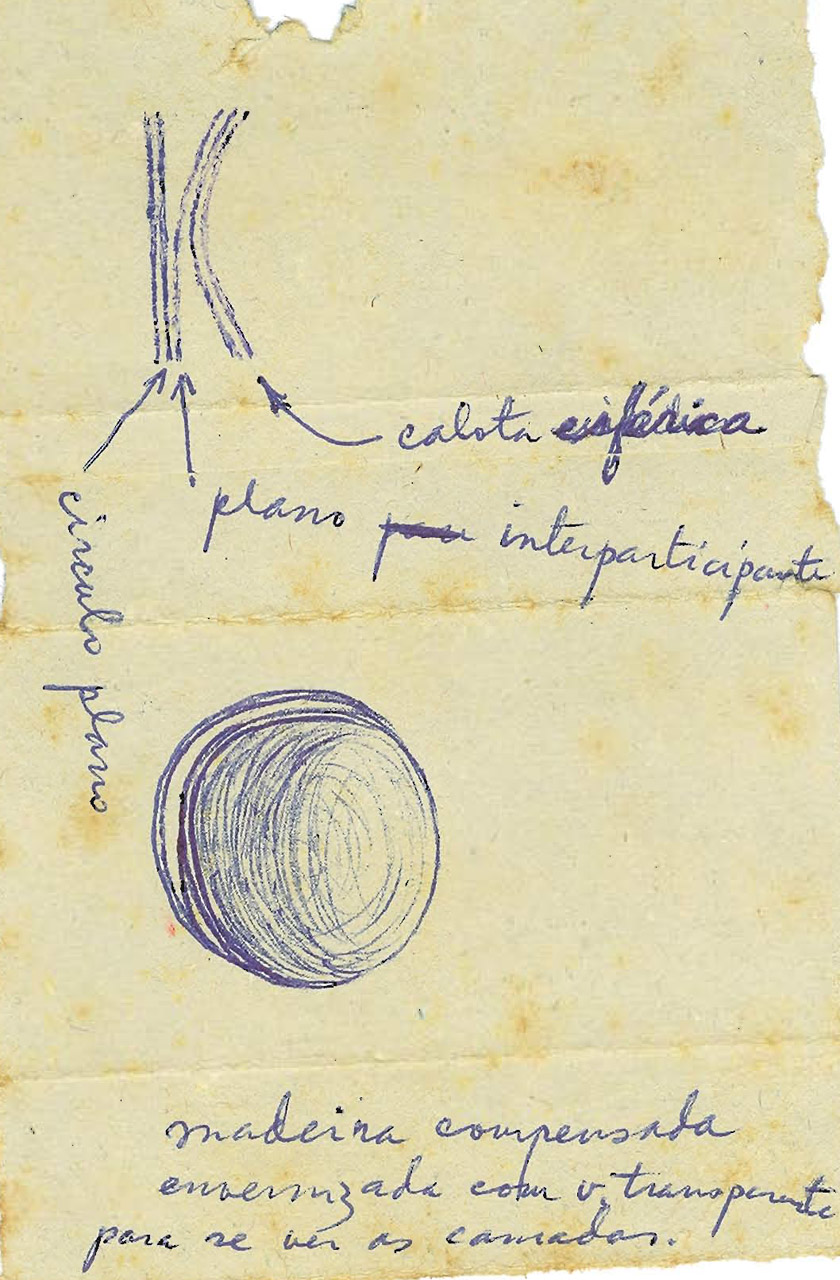 calota esférica
plano interparticipante
circulo plano
madeira compensada
envernizada com v. transparente
para se ver as camadas.